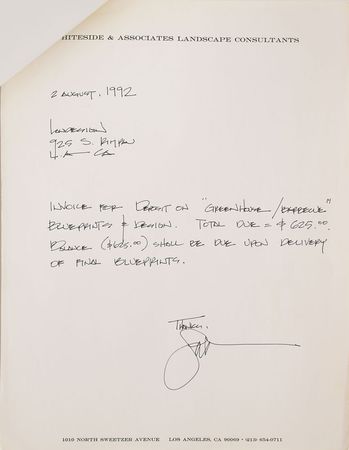 HITESIDE & ASSOCIATES LANDSCAPE CONSULTANTS
2 AUGUST, 1992
925 S.
L.A. CA
INVOICE FOR DEPOSIT ON "GREENHOUSE/BARBECUE"
BLUEPRINTS & DESIGN. TOTAL DUE = $625.00
BALANCE ($625.00) SHALL BE DUE UPON DELIVERY
OF FINAL BLUEPRINTS.
THANKS,
1010 NORTH SWEETZER AVENUE LOS ANGELES, CA 90069 • (213) 654-0711